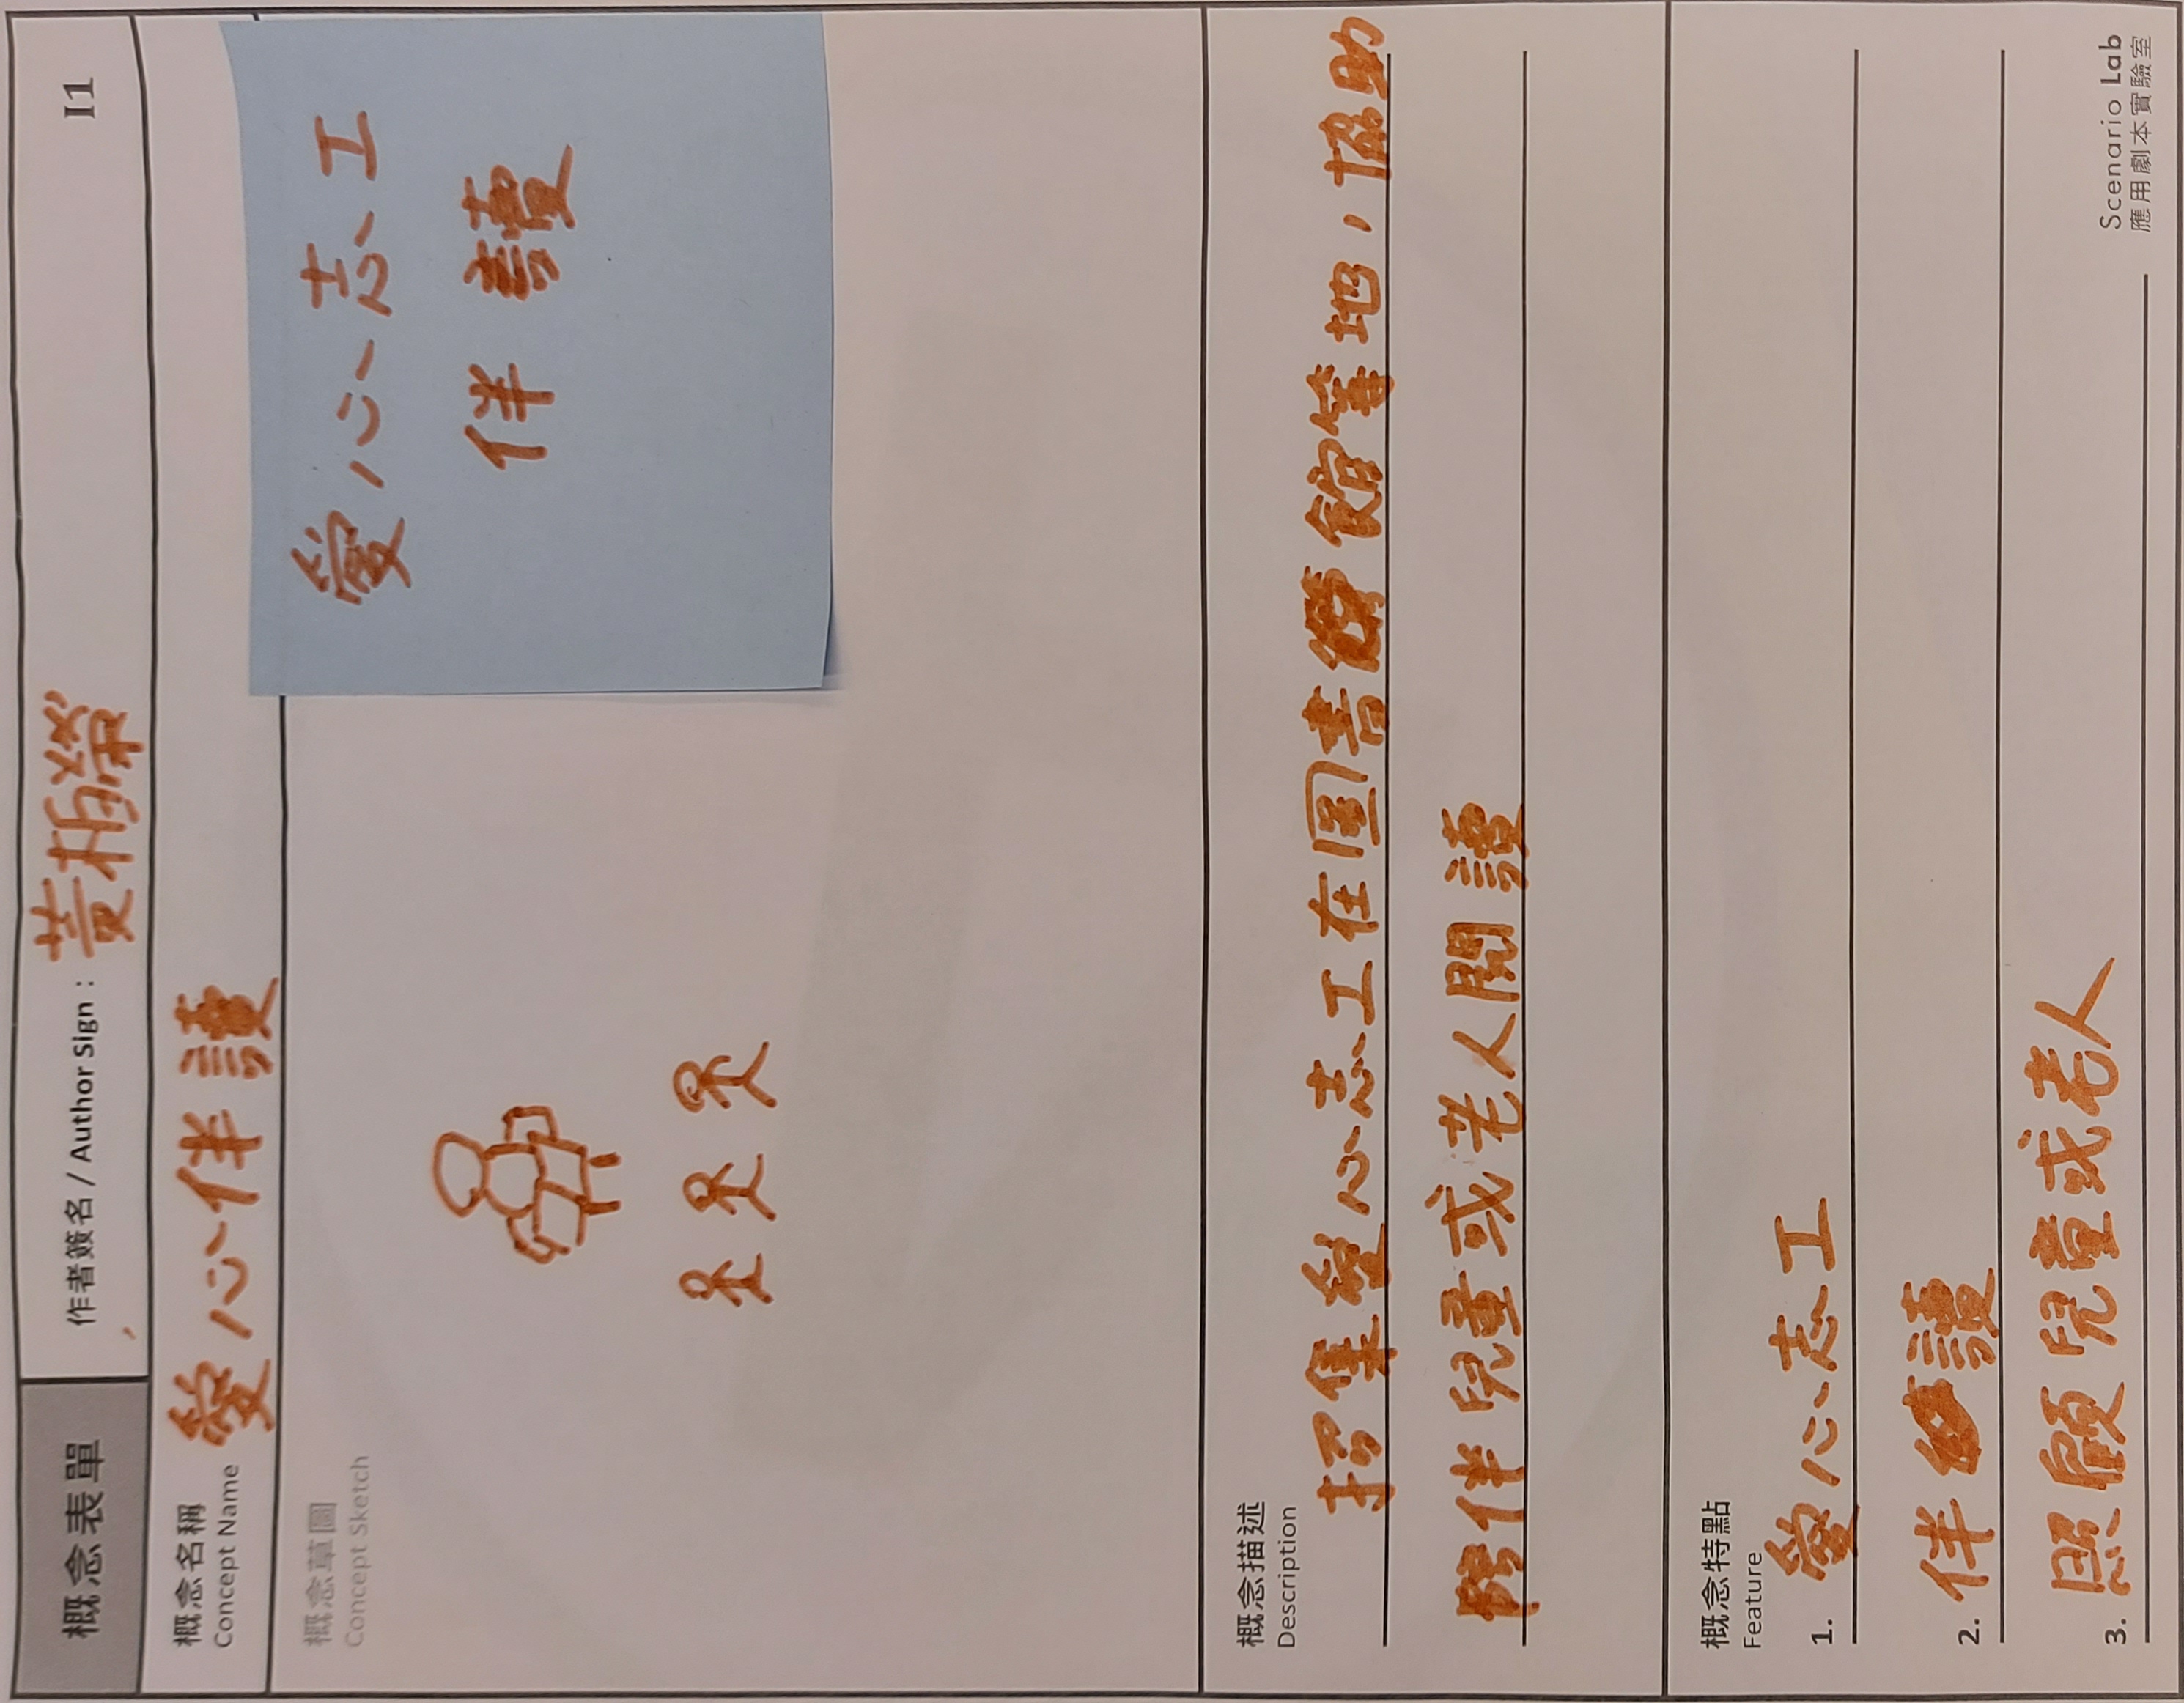 概念表單
作者簽名 / Author Sign : 黃柏榮
I1
概念名稱
Concept Name
愛心伴讀
概念草圖
Concept Sketch
愛心志工
伴讀
概念描述
Description
招集愛心志工在図書館等地，協助
陪伴兒童或老人閱讀
概念特點
Feature
1. 愛心志工
2. 伴讀
3. 照顧兒童或老人
Scenario Lab
應用劇本實驗室